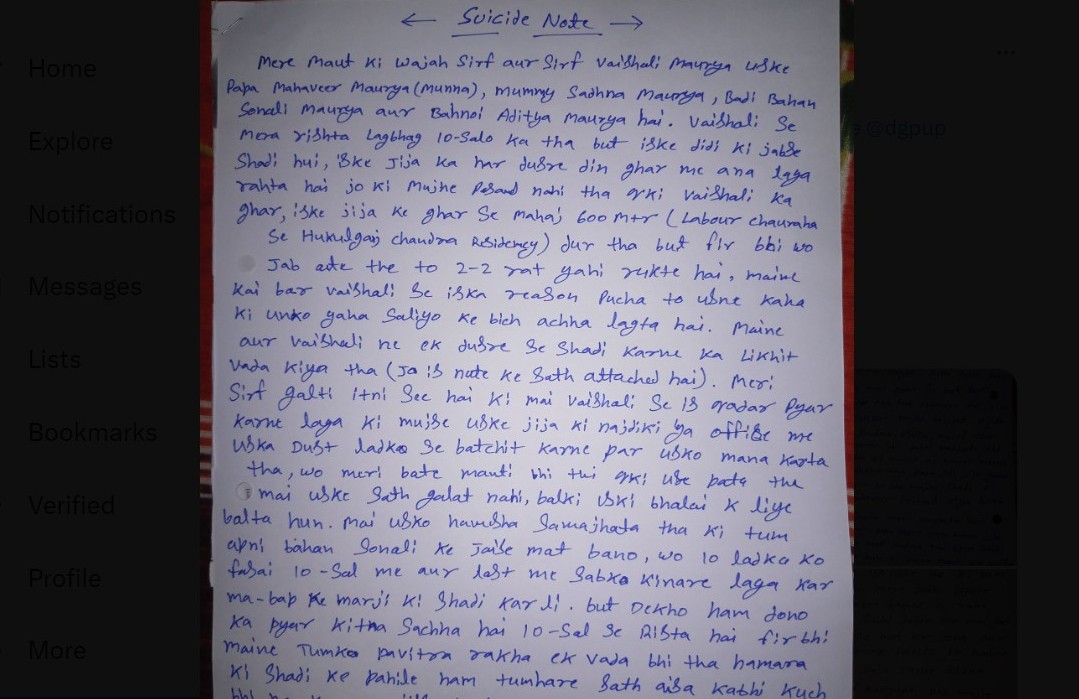 Home
Explore
Notifications
Messages
Lists
Bookmarks
Verified
Profile
More
@dgpup
← Suicide Note →
Mere Maut Ki Wajah Sirf aur Sirf Vaishali Maurya uske
Papa Mahaveer Maurya (Munna), mummy Sadhna Maurya, Badi Bahan
Sonali Maurya aur Bahnoi Aditya Maurya hai. Vaishali Se
Mera rishta Lagbhag 10-Salo Ka tha but iske didi Ki jabse
Shadi hui, iske Jija Ka har dusre din ghar me ana laga
rahta hai jo Ki Mujhe Pasand nahi tha qki Vaishali Ka
ghar, iske jija Ke ghar Se mahaj 600 mtr (Labour chauraha
Se Hukulganj chandra Residency) dur tha but fir bhi wo
Jab ate the to 2-2 rat yahi rukte hai, maine
Kai bar Vaishali Se iska reason Pucha to usne Kaha
Ki unko yaha Saliyo Ke bich achha lagta hai. Maine
aur Vaishali ne ek dusre Se Shadi Karne Ka Likhit
Vada Kiya tha (Jo is note Ke Sath attached hai). Meri
Sirf galti itni See hai Ki mai Vaishali Se is qadar Pyar
Karne laga Ki mujse uske jija Ki najdiki ya office me
uska Dust ladko Se batchit Karne par usko mana Karta
tha, wo meri bate manti bhi thi qki use pata tha
mai uske Sath galat nahi, balki uski bhalai K liye
balta hun. Mai usko hamesha Samajhata tha Ki tum
apni bahan Sonali Ke Jaise mat bano, wo 10 ladko Ko
fasai 10-Sal me aur last me Sabko Kinare laga Kar
ma-bap Ke marji Ki Shadi Kar li. but Dekho ham dono
Ka Pyar Kitna Sachha hai 10-Sal Se Rista hai fir bhi
Maine Tumko Pavitra rakha ek Vada bhi tha hamara
Ki Shadi Ke Pahile ham tumhare Sath aisa Kabhi Kuch